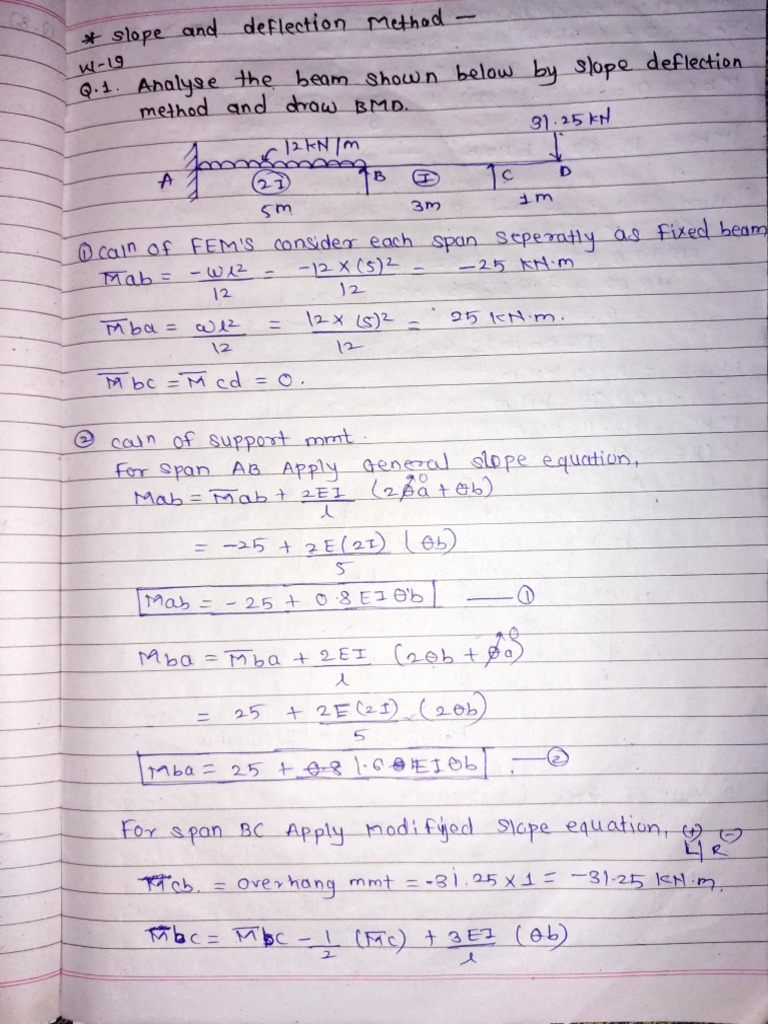 * slope and deflection Method —
W-19
Q.1. Analyse the beam shown below by slope deflection
method and draw BMD.
31.25 KN
12 KN/m
A (2I) B (I) C D
5m 3m 1m
① caln of FEM'S consider each span seperatly as fixed beam
M̅ab = -ωl²/12 = -12×(5)²/12 = -25 KN.m
M̅ba = ωl²/12 = 12×(5)²/12 = 25 KN.m.
M̅bc = M̅cd = 0.
② caln of support mmt.
For span AB Apply General slope equation,
Mab = M̅ab + 2EI/l (2θa + θb)
0
= -25 + 2E(2I)/5 (θb)
Mab = -25 + 0.8EIθb — ①
Mba = M̅ba + 2EI/l (2θb + θa)
0
= 25 + 2E(2I)/5 (2θb)
Mba = 25 + 1.6EIθb. — ②
For span BC Apply Modified slope equation, (+) (-)
L R
Mcb. = overhang mmt = -31.25×1 = -31.25 KN.m.
Mbc = M̅bc - 1/2 (M̅c) + 3EI/l (θb)